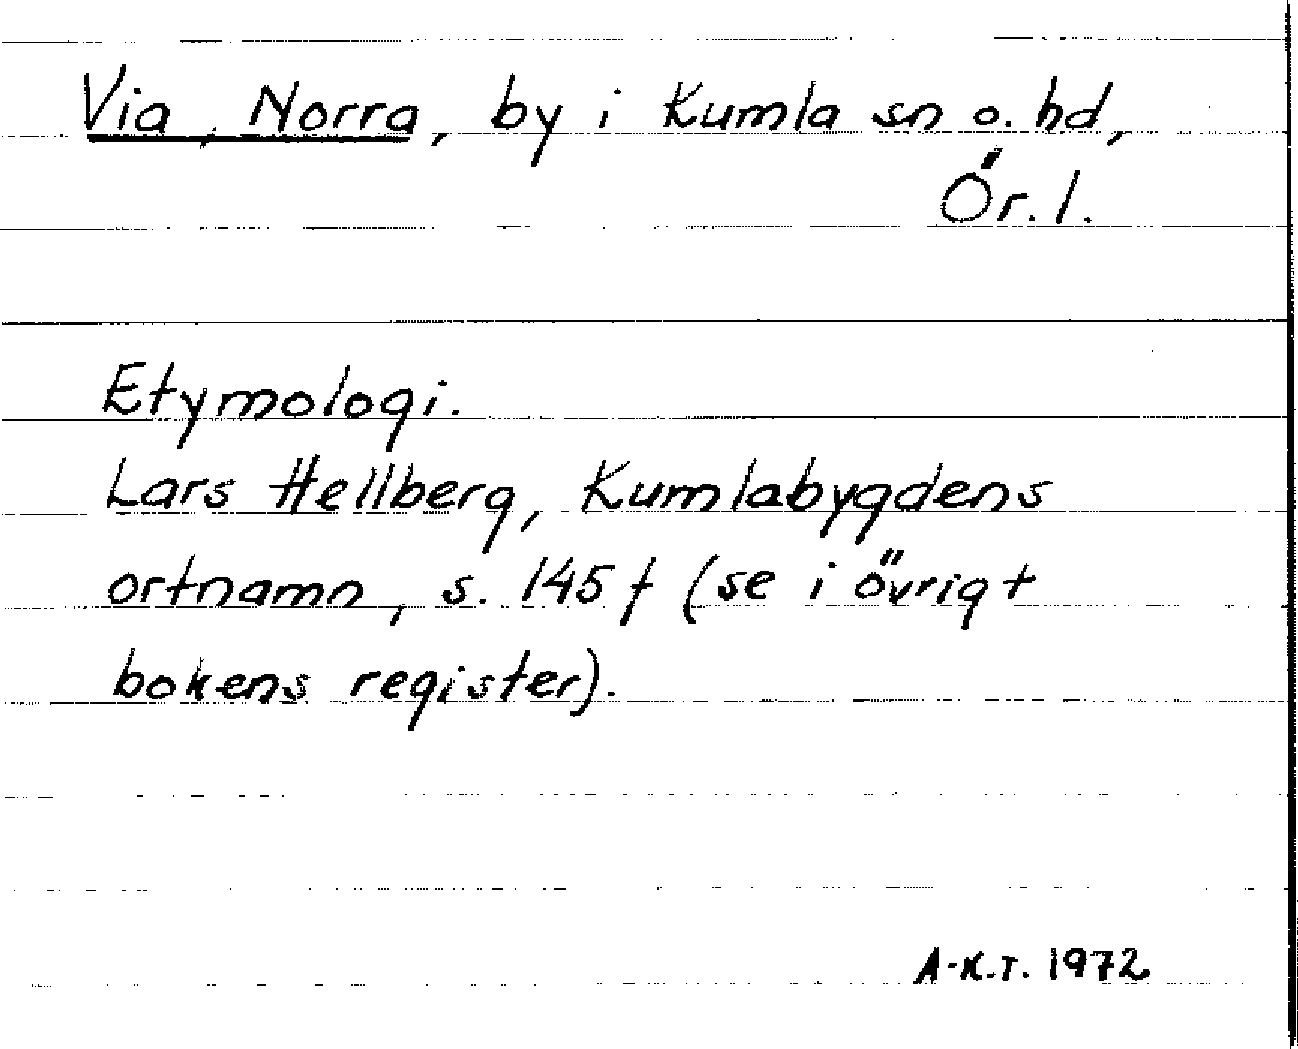 Via, Norra, by i Kumla sn o. hd,
Ör. l.
Etymologi.
Lars Hellberg, Kumlabygdens
ortnamn, s. 145 f (se i övrigt
bokens register).
A-K.T. 1972